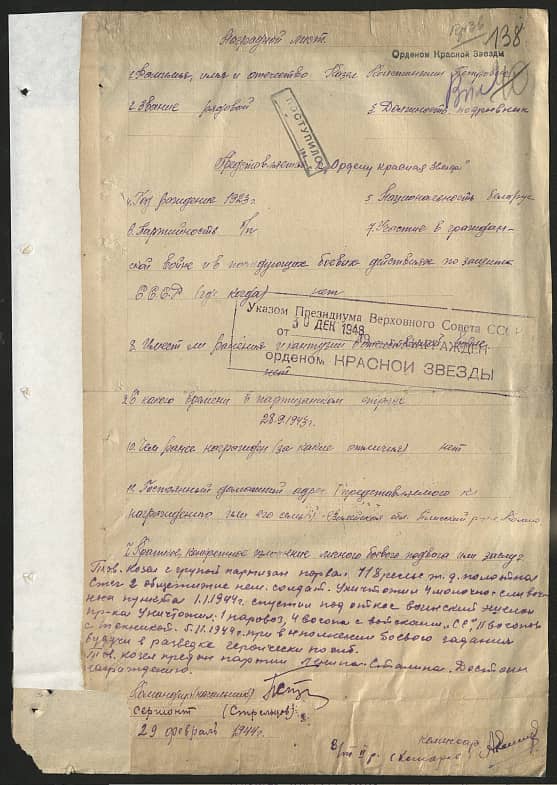 138
Наградной лист.
Орденом Красной Звезды
1. Фамилия, имя и отчество Козел Константин Петрович
2. Звание рядовой 3. Должность подрывник
ПОСТУПИЛО
Представляется к Ордену "Красная Звезда"
4. Год рождения 1923 г. 5. Национальность беларус
6. Партийность б/п 7. Участие в граждан-
ской войне и в последующих боевых действиях по защите
С.С.С.Р (где когда) нет
Указом Президиума Верховного Совета СССР
от 30 ДЕК 1948 НАГРАЖДЕН
орденом КРАСНОЙ ЗВЕЗДЫ
8. Имеет ли ранения и контузии
нет
9. С какого времени в партизанском отряде
28.9.1943 г.
10. Чем ранее награжден (за какие отличия) нет
11. Постоянный домашний адрес представляемого к
награждению или его семьи обл.
Краткое, конкретное изложение личного боевого подвига или заслуг
Тов. Козел с групой партизан порвал 118 рельс ж.д. полотна
Сжег 2 общежития нем. солдат. Уничтожил 4 молочно-сливоч-
пункта 1.1.1944 г. спустил под откос воинский эшелон
пр-ка Уничтожил 1 паровоз, 4 вагона с войсками "СС", 11 вагонов
с техникой. 5.11.1944 г. при выполнении боевого задания
будучи в разведке героически погиб.
Тов. Козел предан партии Ленина-Сталина. Достоин
награждению.
Командир
сержант (Стрельцов)
29 февраль 1944 г.
комиссар